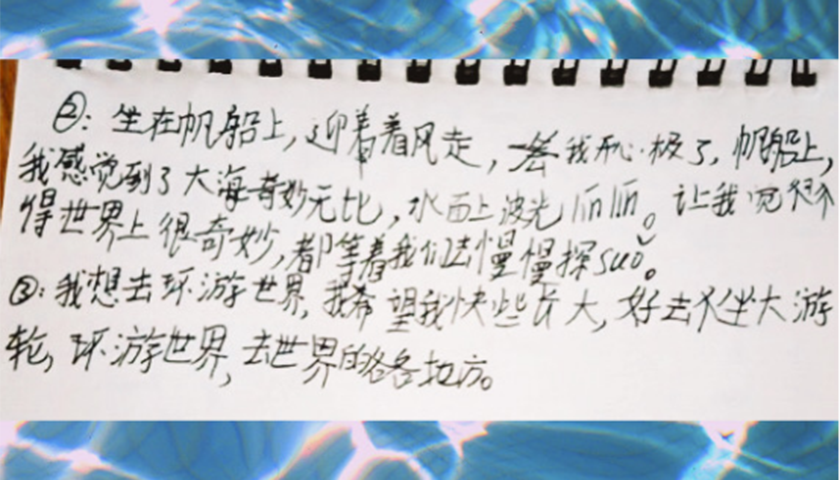 ②:坐在帆船上,迎着着风走,我开心极了,帆船上,
我感觉到了大海奇妙无比,水面上波光lín lín。让我觉
得世界上很奇妙,都等着我们去慢慢探suǒ。
③:我想去环游世界,我希望我快些长大,好去坐大游
轮,环游世界,去世界的各各地方。